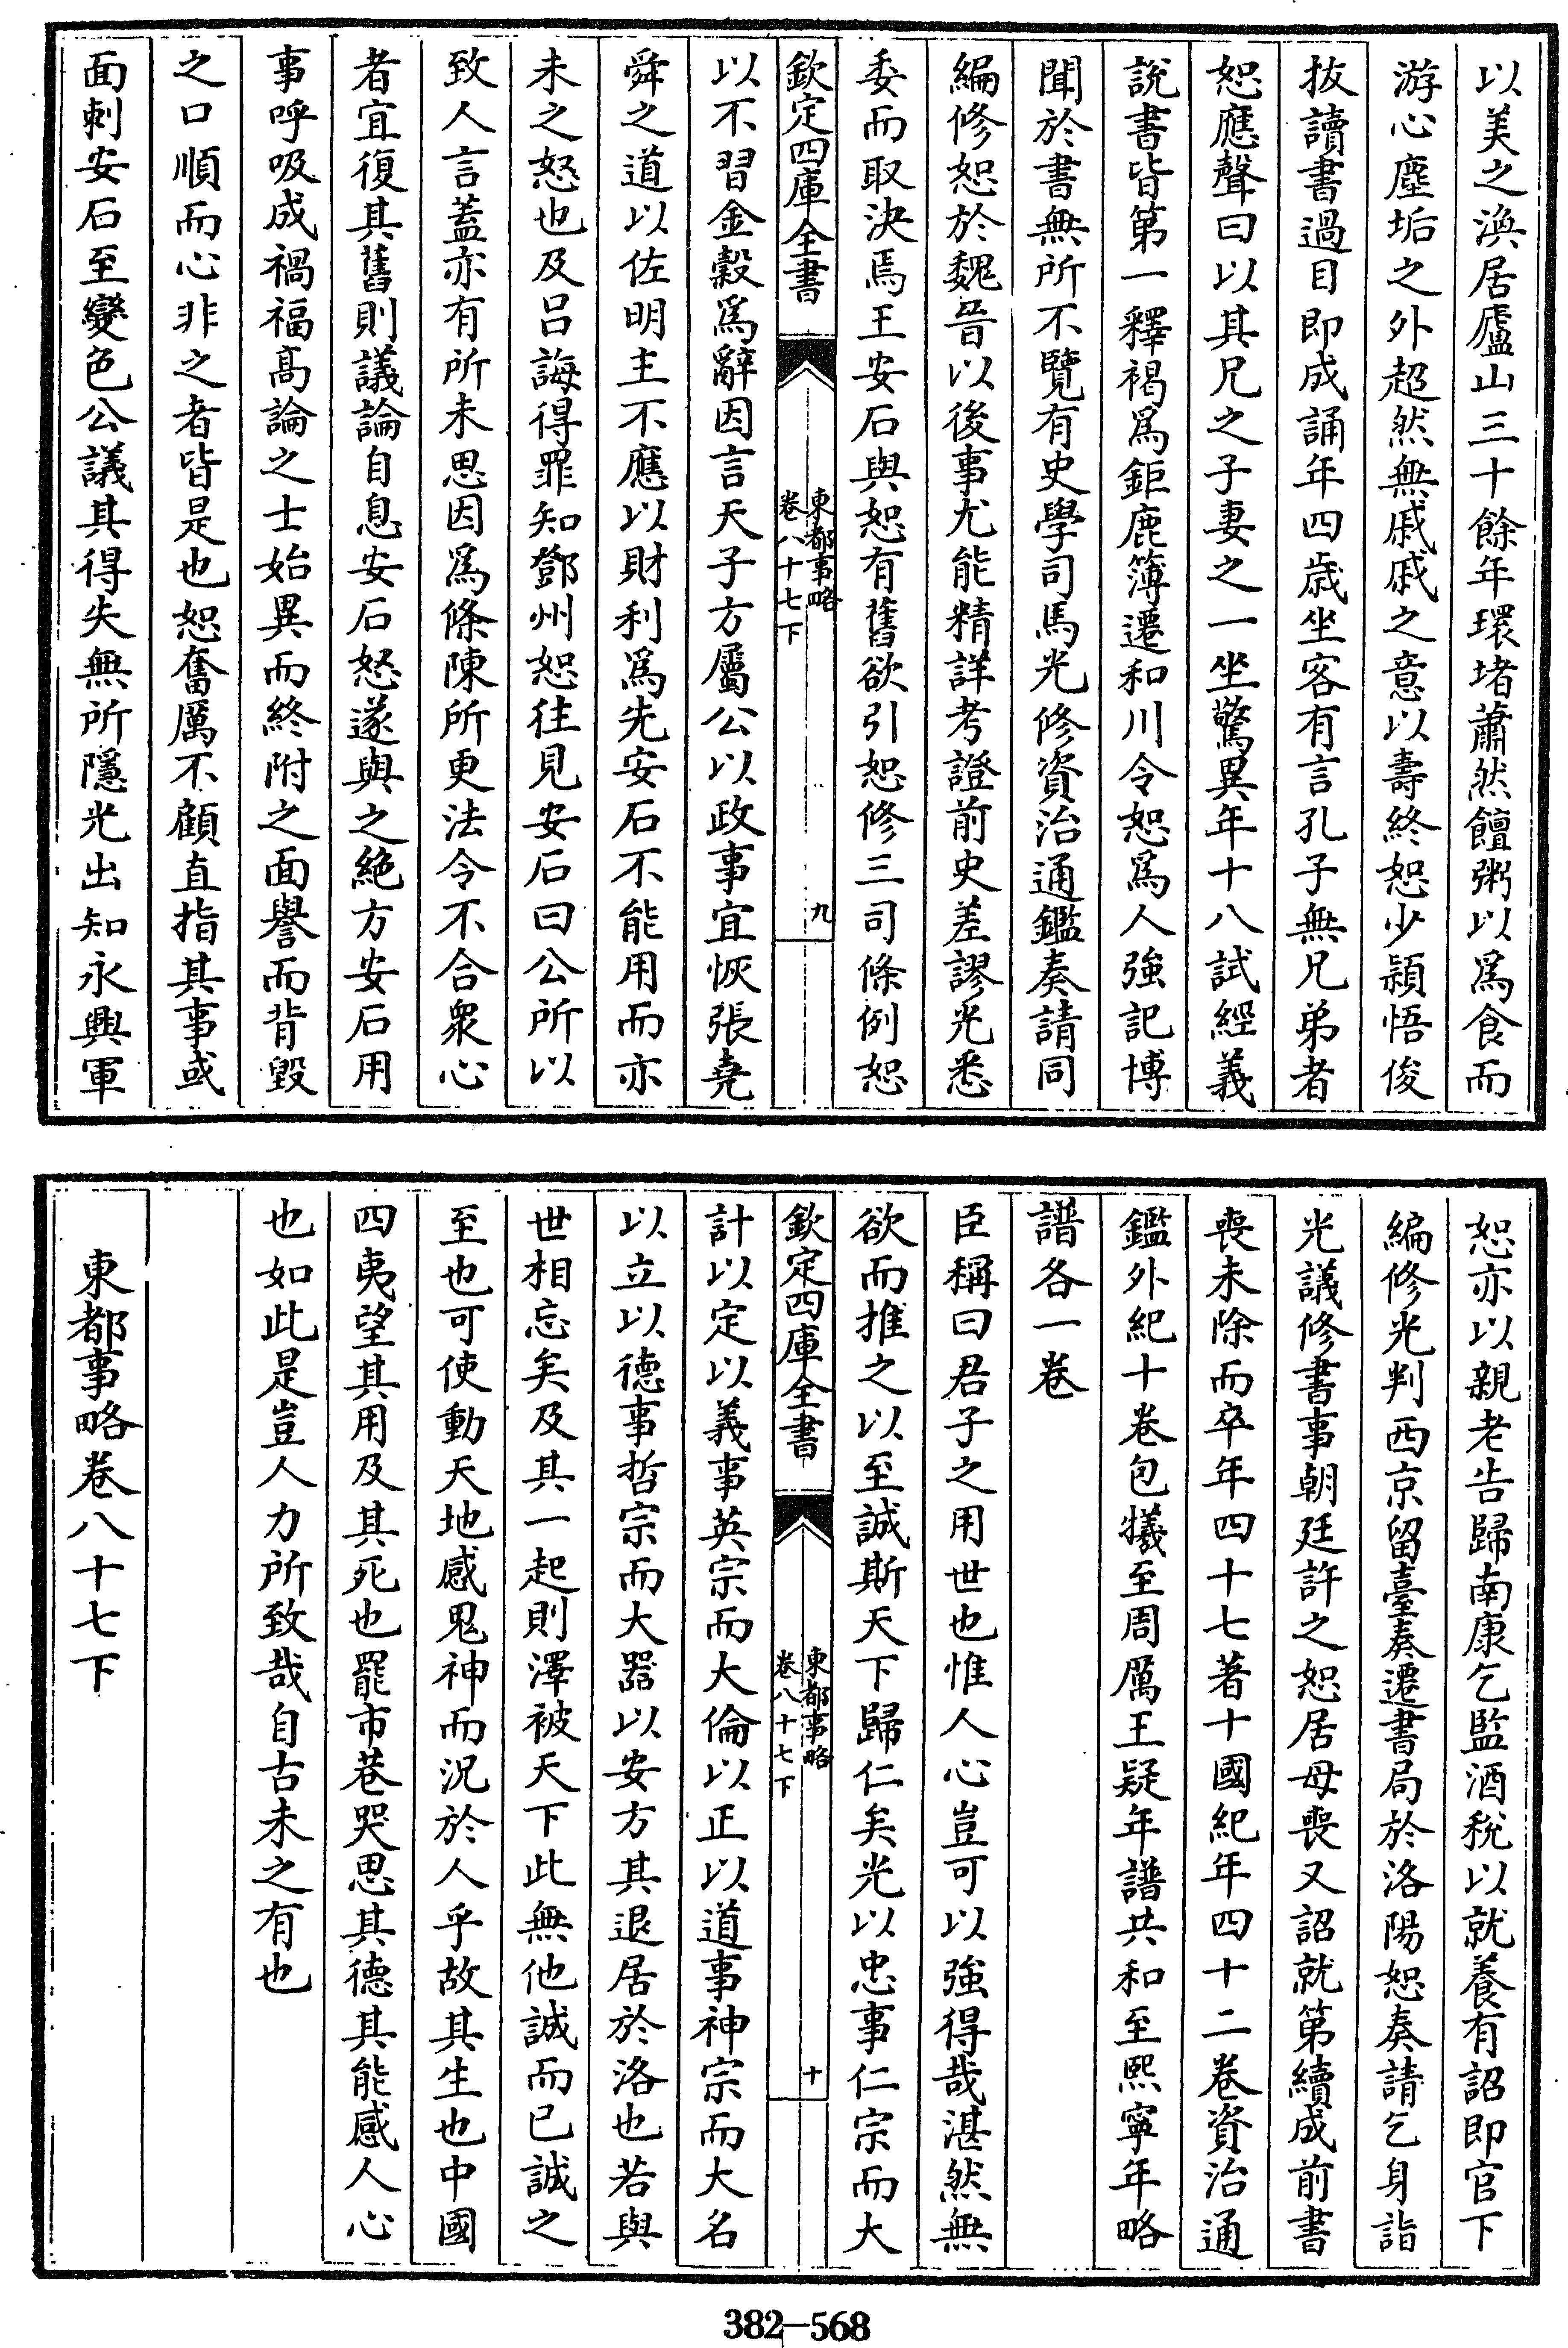 以美之渙居廬山三十餘年環堵蕭然饘粥以爲食而
游心塵垢之外超然無戚戚之意以壽終恕少穎悟俊
拔讀書過目即成誦年四歲坐客有言孔子無兄弟者
恕應聲曰以其兄之子妻之一坐驚異年十八試經義
說書皆第一釋褐爲鉅鹿簿遷和川令恕爲人強記博
聞於書無所不覽有史學司馬光修資治通鑑奏請同
編修恕於魏晉以後事尤能精詳考證前史差謬光悉
委而取決焉王安石與恕有舊欲引恕修三司條例恕
欽定四庫全書
東都事略
卷八十七下
九
以不習金穀爲辭因言天子方屬公以政事宜恢張堯
舜之道以佐明主不應以財利爲先安石不能用而亦
未之怒也及呂誨得罪知鄧州恕往見安石曰公所以
致人言蓋亦有所未思因爲條陳所更法令不合衆心
者宜復其舊則議論自息安石怒遂與之絕方安石用
事呼吸成禍福髙論之士始異而終附之面譽而背毀
之口順而心非之者皆是也恕奮厲不顧直指其事或
面刺安石至變色公議其得失無所隱光出知永興軍
恕亦以親老告歸南康乞監酒稅以就養有詔即官下
編修光判西京留臺奏遷書局於洛陽恕奏請乞身詣
光議修書事朝廷許之恕居母喪又詔就第續成前書
喪未除而卒年四十七著十國紀年四十二卷資治通
鑑外紀十卷包犧至周厲王疑年譜共和至熙寧年略
譜各一卷
臣稱曰君子之用世也惟人心豈可以強得哉湛然無
欲而推之以至誠斯天下歸仁矣光以忠事仁宗而大
欽定四庫全書
東都事略
卷八十七下
十
計以定以義事英宗而大倫以正以道事神宗而大名
以立以德事哲宗而大器以安方其退居於洛也若與
世相忘矣及其一起則澤被天下此無他誠而已誠之
至也可使動天地感鬼神而況於人乎故其生也中國
四夷望其用及其死也罷市巷哭思其德其能感人心
也如此是豈人力所致哉自古未之有也
東都事略卷八十七下
382-568